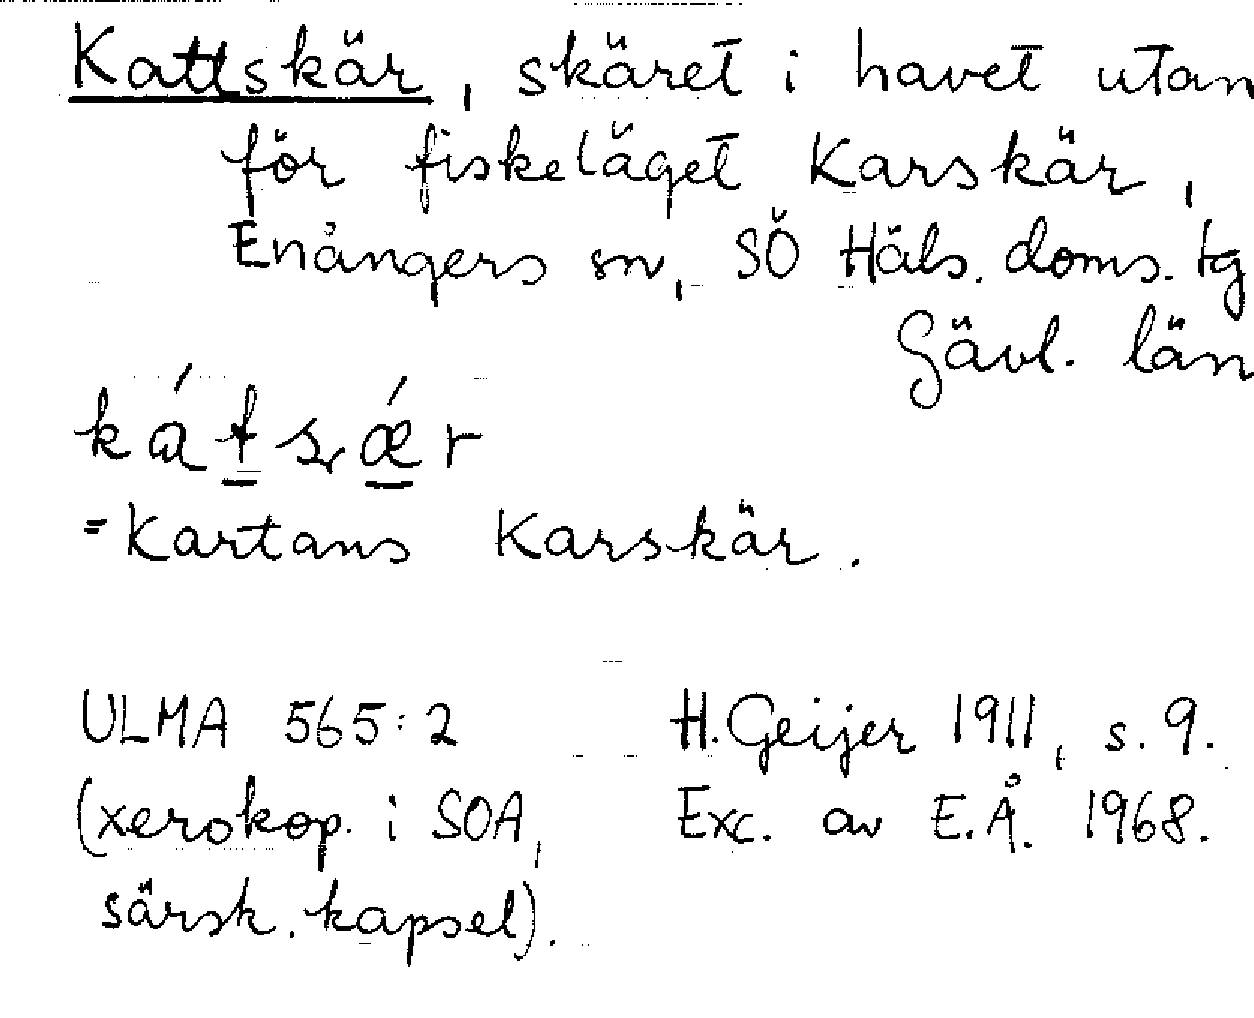 Kattskär, skäret i havet utan
för fiskeläget Karskär,
Enångers sn, SÖ Häls. doms. tg
Gävl. län
kátsǽr
= Kartans Karskär.
ULMA 565:2 H. Geijer 1911, s. 9.
(xerokop. i SOA, Exc. av E.Å. 1968.
särsk. kapsel).